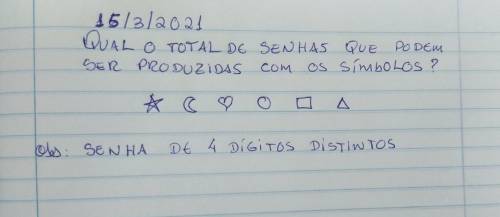 15/3/2021
QUAL O TOTAL DE SENHAS QUE PODEM
SER PRODUZIDAS COM OS SÍMBOLOS?
Obs: SENHA DE 4 DÍGITOS DISTINTOS